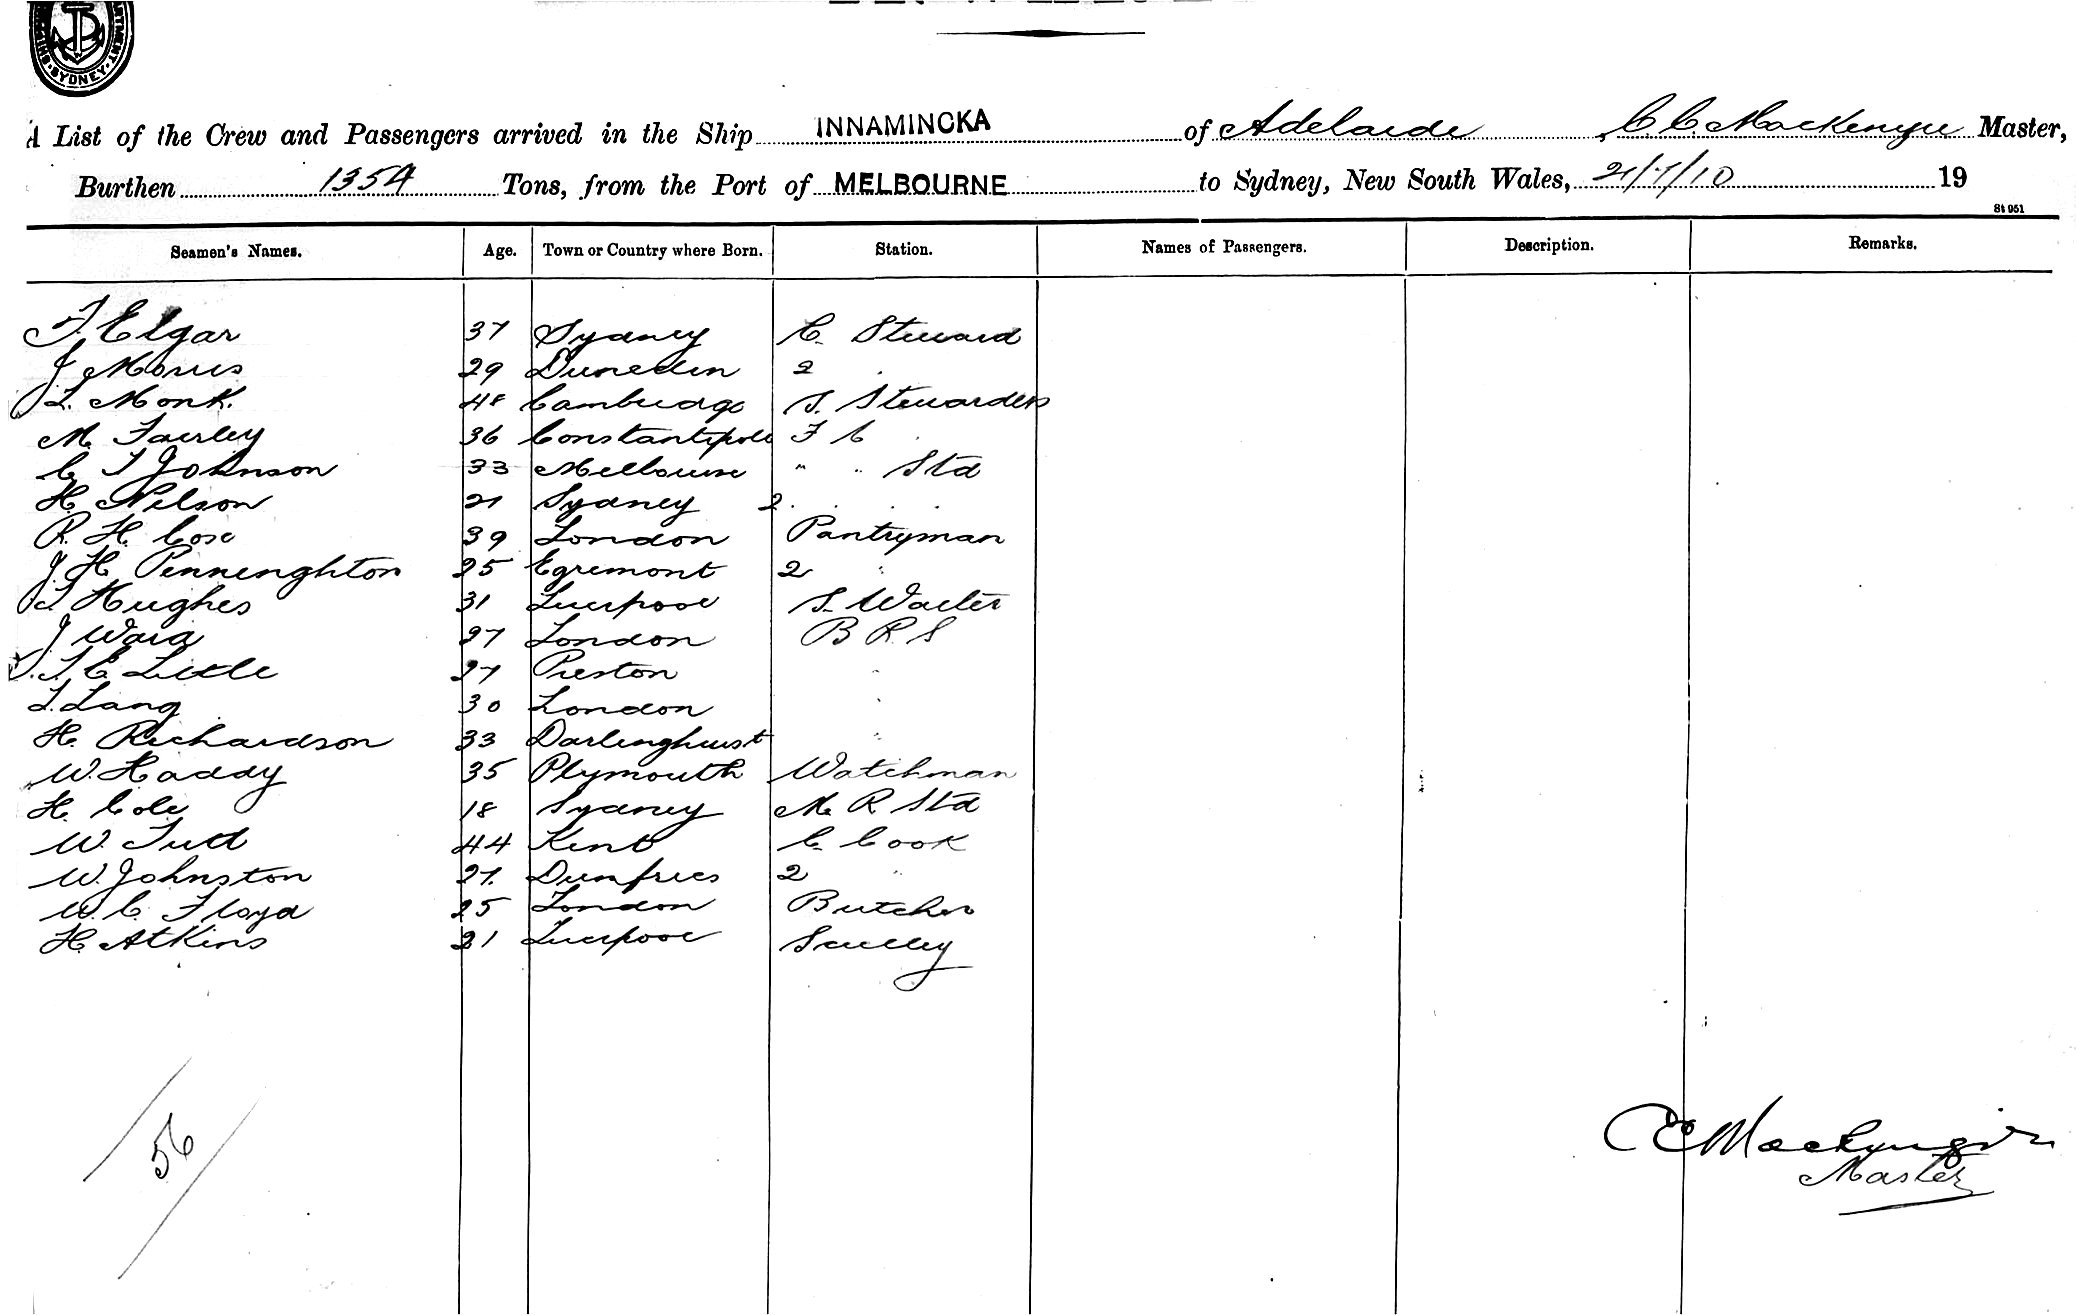 SYDNEY
A List of the Crew and Passengers arrived in the Ship INNAMINCKA of Adelaide, C. C. Mackenzie Master,
Burthen 1354 Tons, from the Port of MELBOURNE to Sydney, New South Wales, 21/7/10 19
St 951
Seamen's Names. Age. Town or Country where Born. Station. Names of Passengers. Description. Remarks.
F. Elgar 37 Sydney C. Steward
J. Morris 29 Dunedin 2 "
L. Monk. 48 Cambridge S. Stewardess
M. Fairley 36 Constantipole F C "
C T Johnson 33 Melbourne " " Std
H. Nelson 21 Sydney 2. " "
R. H. Cox 39 London Pantryman
J. H. Pennenghton 25 Egremont 2 "
T Hughes 31 Liverpool S. Waiter
J Ward 27 London B R S
T. C Little 27 Preston "
L. Lang 30 London "
H. Richardson 33 Darlinghurst "
W. Haddy 35 Plymouth Watchman
H. Cole 18 Sydney M R Std
W. Tutt 44 Kent C. Cook
W. Johnston 27. Dumfries 2 "
W. C. Floyd 25 London Butcher
H. Atkins 21 Liverpool Sculley
56
C C Mackenzie
Master